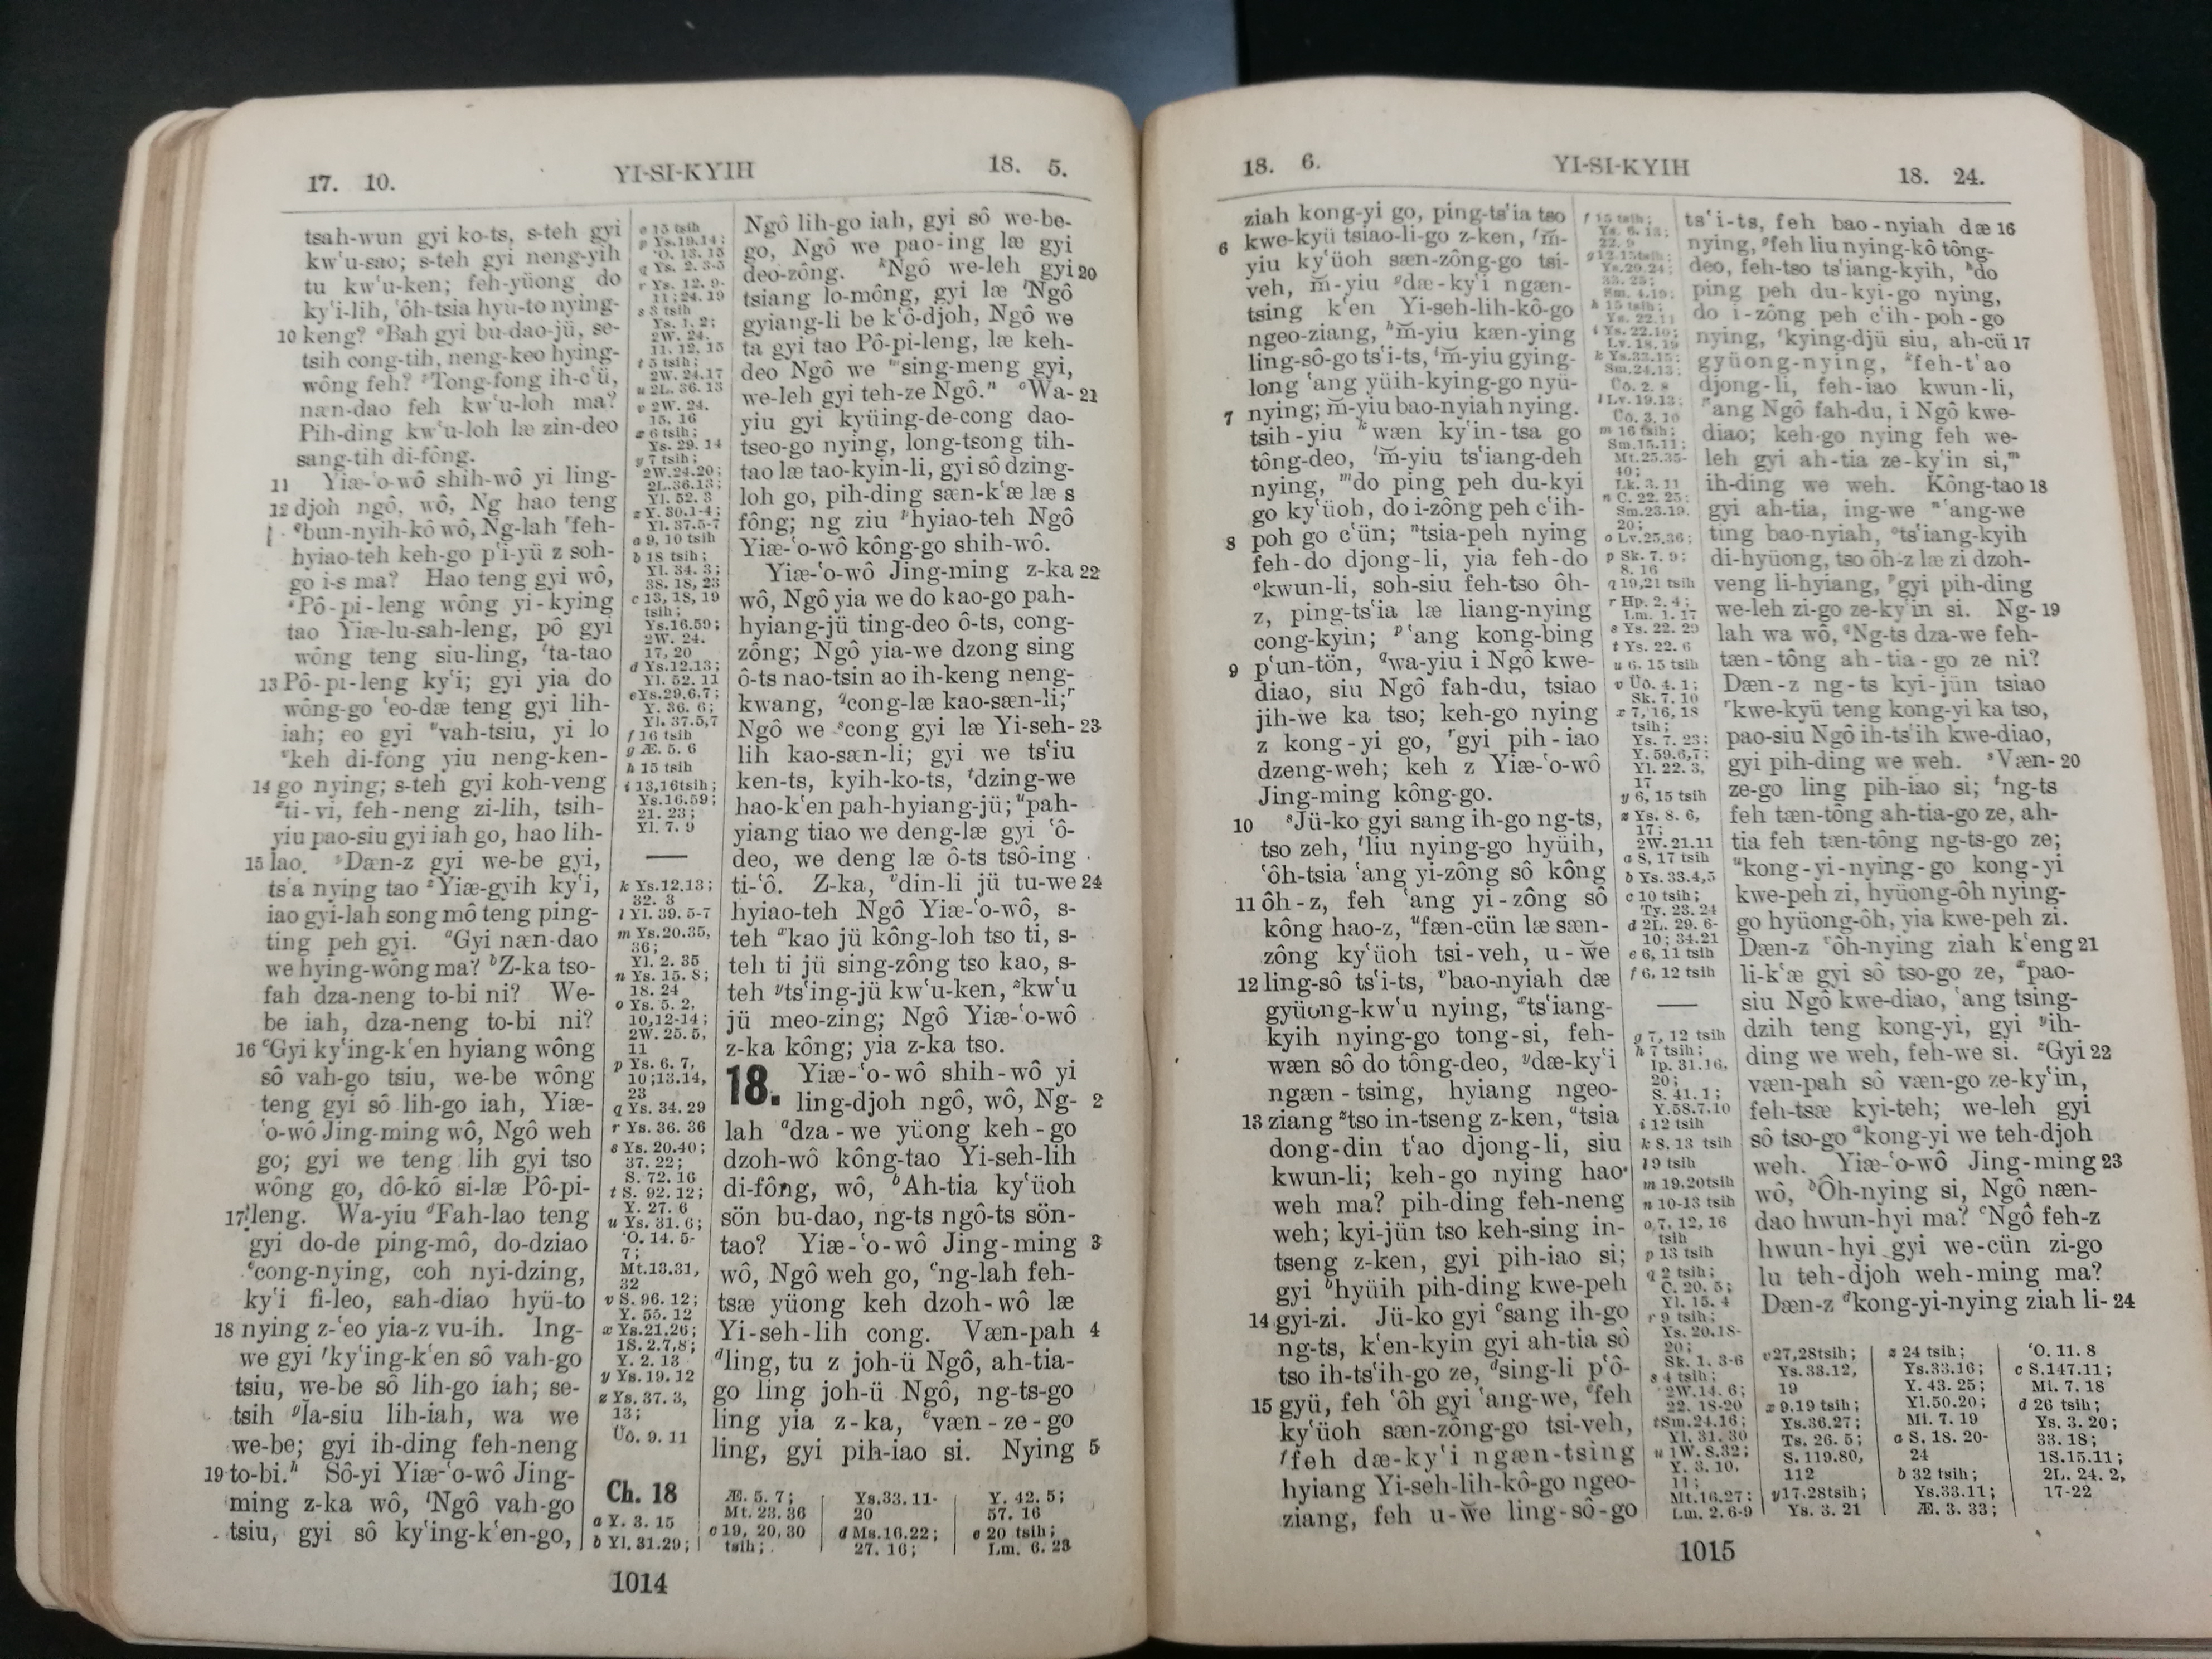 17. 10.
YI-SI-KYIH
18. 5.
tsah-wun gyi ko-ts, s-teh gyi
kw‘u-sao; s-teh gyi neng-yih
tu kw‘u-ken; feh-yüong do
ky‘i-lih, ‘ôh-tsia hyü-to nying-
10 keng? ᵒBah gyi bu-dao-jü, se-
tsih cong-tih, neng-keo hying-
wông feh? ᵖTong-fong ih-c‘ü,
næn-dao feh kw‘u-loh ma?
Pih-ding kw‘u-loh læ zin-deo
sang-tih di-fông.
11 Yiæ-‘o-wô shih-wô yi ling-
12 djoh ngô, wô, Ng hao teng
ᑫbun-nyih-kô wô, Ng-lah ʳfeh-
hyiao-teh keh-go p‘i-yü z soh-
go i-s ma? Hao teng gyi wô,
ˢPô-pi-leng wông yi-kying
tao Yiæ-lu-sah-leng, pô gyi
wông teng siu-ling, ᵗta-tao
13 Pô-pi-leng ky‘i; gyi yia do
wông-go ‘eo-dæ teng gyi lih-
iah; eo gyi ᵘvah-tsiu, yi lo
ᵛkeh di-fông yiu neng-ken-
14 go nying; s-teh gyi koh-veng
ˣti-vi, feh-neng zi-lih, tsih-
yiu pao-siu gyi iah go, hao lih-
15 lao. ʸDæn-z gyi we-be gyi,
ts‘a nying tao ᶻYiæ-gyih ky‘i,
iao gyi-lah song mô teng ping-
ting peh gyi. ᵃGyi næn-dao
we hying-wông ma? ᵇZ-ka tso-
fah dza-neng to-bi ni? We-
be iah, dza-neng to-bi ni?
16 ᶜGyi ky‘ing-k‘en hyiang wông
sô vah-go tsiu, we-be wông
teng gyi sô lih-go iah, Yiæ-
‘o-wô Jing-ming wô, Ngô weh
go; gyi we teng lih gyi tso
wông go, dô-kô si-læ Pô-pi-
17 leng. Wa-yiu ᵈFah-lao teng
gyi do-de ping-mô, do-dziao
ᵉcong-nying, coh nyi-dzing,
ky‘i fi-leo, sah-diao hyü-to
18 nying z-‘eo yia-z vu-ih. Ing-
we gyi ᶠky‘ing-k‘en sô vah-go
tsiu, we-be sô lih-go iah; se-
tsih ᵍla-siu lih-iah, wa we
we-be; gyi ih-ding feh-neng
19 to-bi.ʰ Sô-yi Yiæ-‘o-wô Jing-
ming z-ka wô, ⁱNgô vah-go
tsiu, gyi sô ky‘ing-k‘en-go,
o 15 tsih
p Ys.19.14;
‘O. 13. 15
q Ys. 2. 3-5
r Ys. 12. 9-
11; 24. 19
s 3 tsih
Ys. 1. 2;
2W. 24.
11. 12, 15
t 5 tsih;
2W. 24.17
u 2L. 36. 13
v 2W. 24.
15. 16
x 6 tsih;
Ys. 29. 14
y 7 tsih;
2W.24.20;
2L.36.13;
Yl. 52. 3
z Y. 30.1-4;
Yl. 37.5-7
a 9, 10 tsih
b 18 tsih;
Yl. 34. 3;
38. 18, 23
c 13, 18, 19
tsih;
Ys.16.59;
2W. 24.
17, 20
d Ys.12.13;
Yl. 52. 11
e Ys.29.6.7;
Y. 36. 6;
Yl. 37.5,7
f 16 tsih
g Æ. 5. 6
h 15 tsih
i 13,16tsih;
Ys.16.59;
21. 23;
Yl. 7. 9
k Ys.12.13;
32. 3
l Yl. 39. 5-7
m Ys.20.35,
36;
Yl. 2. 35
n Ys. 15. 8;
18. 24
o Ys. 5. 2,
10,12-14;
2W. 25. 5,
11
p Ys. 6. 7,
10;13.14,
23
q Ys. 34. 29
r Ys. 36. 36
s Ys. 20.40;
37. 22;
S. 72. 16
t S. 92. 12;
Y. 27. 6
u Ys. 31. 6;
‘O. 14. 5-
7;
Mt.13.31,
32
v S. 96. 12;
Y. 55. 12
x Ys.21.26;
1S. 2.7,8;
Y. 2. 13
y Ys. 19. 12
z Ys. 37. 3,
13;
Üô. 9. 11
Ngô lih-go iah, gyi sô we-be-
go, Ngô we pao-ing læ gyi
deo-zông. ᵏNgô we-leh gyi 20
tsiang lo-mông, gyi læ ˡNgô
gyiang-li be k‘ô-djoh, Ngô we
ta gyi tao Pô-pi-leng, læ keh-
deo Ngô we ᵐsing-meng gyi,
we-leh gyi teh-ze Ngô.ⁿ ᵒWa- 21
yiu gyi kyüing-de-cong dao-
tseo-go nying, long-tsong tih-
tao læ tao-kyin-li, gyi sô dzing-
loh go, pih-ding sæn-k‘æ læ s
fông; ng ziu ᵖhyiao-teh Ngô
Yiæ-‘o-wô kông-go shih-wô.
Yiæ-‘o-wô Jing-ming z-ka 22
wô, Ngô yia we do kao-go pah-
hyiang-jü ting-deo ô-ts, cong-
zông; Ngô yia-we dzong sing
ô-ts nao-tsin ao ih-keng neng-
kwang, ᑫcong-læ kao-sæn-li;ʳ
Ngô we ˢcong gyi læ Yi-seh- 23
lih kao-sæn-li; gyi we ts‘iu
ken-ts, kyih-ko-ts, ᵗdzing-we
hao-k‘en pah-hyiang-jü; ᵘpah-
yiang tiao we deng-læ gyi ‘ô-
deo, we deng læ ô-ts tsô-ing
ti-‘ô. Z-ka, ᵛdin-li jü tu-we 24
hyiao-teh Ngô Yiæ-‘o-wô, s-
teh ˣkao jü kông-loh tso ti, s-
teh ti jü sing-zông tso kao, s-
teh ʸts‘ing-jü kw‘u-ken, ᶻkw‘u
jü meo-zing; Ngô Yiæ-‘o-wô
z-ka kông; yia z-ka tso.
18. Yiæ-‘o-wô shih-wô yi
ling-djoh ngô, wô, Ng- 2
lah ᵃdza-we yüong keh-go
dzoh-wô kông-tao Yi-seh-lih
di-fông, wô, ᵇAh-tia ky‘üoh
sön bu-dao, ng-ts ngô-ts sön-
tao? Yiæ-‘o-wô Jing-ming 3
wô, Ngô weh go, ᶜng-lah feh-
tsæ yüong keh dzoh-wô læ
Yi-seh-lih cong. Væn-pah 4
ᵈling, tu z joh-ü Ngô, ah-tia-
go ling joh-ü Ngô, ng-ts-go
ling yia z-ka, ᵉvæn-ze-go
ling, gyi pih-iao si. Nying 5
Ch. 18
a Y. 3. 15
b Yl. 31.29;
Æ. 5. 7;
Mt. 23. 36
c 19, 20, 30
tsih;
Ys.33. 11-
20
d Ms.16.22;
27. 16;
Y. 42. 5;
57. 16
e 20 tsih;
Lm. 6. 23
1014
18. 6.
YI-SI-KYIH
18. 24.
ziah kong-yi go, ping-ts‘ia tso
6 kwe-kyü tsiao-li-go z-ken, ᶠm̆-
yiu ky‘üoh sæn-zông-go tsi-
veh, m̆-yiu ᵍdæ-ky‘i ngæn-
tsing k‘en Yi-seh-lih-kô-go
ngeo-ziang, ʰm̆-yiu kæn-ying
ling-sô-go ts‘i-ts, ⁱm̆-yiu gying-
long ‘ang yüih-kying-go nyü-
7 nying; m̆-yiu bao-nyiah nying.
tsih-yiu ᵏwæn ky‘in-tsa go
tông-deo, ˡm̆-yiu ts‘iang-deh
nying, ᵐdo ping peh du-kyi
go ky‘üoh, do i-zông peh c‘ih-
8 poh go c‘ün; ⁿtsia-peh nying
feh-do djong-li, yia feh-do
ᵒkwun-li, soh-siu feh-tso ôh-
z, ping-ts‘ia læ liang-nying
cong-kyin; ᵖ‘ang kong-bing
9 p‘un-tön, ᑫwa-yiu i Ngô kwe-
diao, siu Ngô fah-du, tsiao
jih-we ka tso; keh-go nying
z kong-yi go, ʳgyi pih-iao
dzeng-weh; keh z Yiæ-‘o-wô
Jing-ming kông-go.
10 ˢJü-ko gyi sang ih-go ng-ts,
tso zeh, ᵗliu nying-go hyüih,
‘ôh-tsia ‘ang yi-zông sô kông
11 ôh-z, feh ‘ang yi-zông sô
kông hao-z, ᵘfæn-cün læ sæn-
zông ky‘üoh tsi-veh, u-w̆e
12 ling-sô ts‘i-ts, ᵛbao-nyiah dæ
gyüong-kw‘u nying, ˣts‘iang-
kyih nying-go tong-si, feh-
wæn sô do tông-deo, ʸdæ-ky‘i
ngæn-tsing, hyiang ngeo-
13 ziang ᶻtso in-tseng z-ken, ᵃtsia
dong-din t‘ao djong-li, siu
kwun-li; keh-go nying hao
weh ma? pih-ding feh-neng
weh; kyi-jün tso keh-sing in-
tseng z-ken, gyi pih-iao si;
gyi ᵇhyüih pih-ding kwe-peh
14 gyi-zi. Jü-ko gyi ᶜsang ih-go
ng-ts, k‘en-kyin gyi ah-tia sô
tso ih-ts‘ih-go ze, ᵈsing-li p‘ô-
15 gyü, feh ‘ôh gyi ‘ang-we, ᵉfeh
ky‘üoh sæn-zông-go tsi-veh,
ᶠfeh dæ-ky‘i ngæn-tsing
hyiang Yi-seh-lih-kô-go ngeo-
ziang, feh u-w̆e ling-sô-go
f 15 tsih;
Ys. 6. 13;
22. 9
g 12.15tsih;
Ys.20.24;
33. 25;
Sm. 4.19;
h 15 tsih;
Ys. 22.11
i Ys. 22.10;
Lv. 18. 19
k Ys.33.15;
Sm.24.13;
Üô. 2. 8
l Lv. 19.13;
Üô. 3. 10
m 16 tsih;
Sm.15.11;
Mt.25.35-
40;
Lk. 3. 11
n C. 22. 25;
Sm.23.19.
20;
o Lv.25.36;
p Sk. 7. 9;
8. 16
q 19,21 tsih
r Hp. 2. 4;
Lm. 1. 17
s Ys. 22. 29
t Ys. 22. 6
u 6. 15 tsih
v Üô. 4. 1;
Sk. 7. 10
x 7, 16, 18
tsih;
Ys. 7. 23;
Y. 59.6,7;
Yl. 22. 3,
17
y 6, 15 tsih
z Ys. 8. 6,
17;
2W. 21.11
a 8, 17 tsih
b Ys. 33.4,5
c 10 tsih;
Ty. 23. 24
d 2L. 29. 6-
10; 34.21
e 6, 11 tsih
f 6, 12 tsih
g 7, 12 tsih
h 7 tsih;
Ip. 31.16,
20;
S. 41. 1;
Y.58.7.10
i 12 tsih
k 8. 13 tsih
l 9 tsih
m 19.20tsih
n 10-13 tsih
o 7, 12, 16
tsih
p 13 tsih
q 2 tsih;
C. 20. 5;
Yl. 15. 4
r 9 tsih;
Ys. 20.18-
20;
Sk. 1. 3-6
s 4 tsih;
2W.14. 6;
22. 18-20
t Sm.24.16;
Yl. 31. 30
u 1W. 8.32;
Y. 3. 10,
11;
Mt.16.27;
Lm. 2. 6-9
ts‘i-ts, feh bao-nyiah dæ 16
nying, ᵍfeh liu nying-kô tông-
deo, feh-tso ts‘iang-kyih, ʰdo
ping peh du-kyi-go nying,
do i-zông peh c‘ih-poh-go
nying, ⁱkying-djü siu, ah-cü 17
gyüong-nying, ᵏfeh-t‘ao
djong-li, feh-iao kwun-li,
ˡ‘ang Ngô fah-du, i Ngô kwe-
diao; keh-go nying feh we-
leh gyi ah-tia ze-ky‘in si,ᵐ
ih-ding we weh. Kông-tao 18
gyi ah-tia, ing-we ⁿ‘ang-we
ting bao-nyiah, ᵒts‘iang-kyih
di-hyüong, tso ôh-z læ zi dzoh-
veng li-hyiang, ᵖgyi pih-ding
we-leh zi-go ze-ky‘in si. Ng- 19
lah wa wô, ᑫNg-ts dza-we feh-
tæn-tông ah-tia-go ze ni?
Dæn-z ng-ts kyi-jün tsiao
ʳkwe-kyü teng kong-yi ka tso,
pao-siu Ngô ih-ts‘ih kwe-diao,
gyi pih-ding we weh. ˢVæn- 20
ze-go ling pih-iao si; ᵗng-ts
feh tæn-tông ah-tia-go ze, ah-
tia feh tæn-tông ng-ts-go ze;
ᵘkong-yi-nying-go kong-yi
kwe-peh zi, hyüong-ôh nying-
go hyüong-ôh, yia kwe-peh zi.
Dæn-z ᵛôh-nying ziah k‘eng 21
li-k‘æ gyi sô tso-go ze, ˣpao-
siu Ngô kwe-diao, ‘ang tsing-
dzih teng kong-yi, gyi ʸih-
ding we weh, feh-we si. ᶻGyi 22
væn-pah sô væn-go ze-ky‘in,
feh-tsæ kyi-teh; we-leh gyi
sô tso-go ᵃkong-yi we teh-djoh
weh. Yiæ-‘o-wô Jing-ming 23
wô, ᵇÔh-nying si, Ngô næn-
dao hwun-hyi ma? ᶜNgô feh-z
hwun-hyi gyi we-cün zi-go
lu teh-djoh weh-ming ma?
Dæn-z ᵈkong-yi-nying ziah li- 24
v 27,28tsih;
Ys.33.12,
19
x 9.19 tsih;
Ys.36.27;
Ts. 26. 5;
S. 119.80,
112
y 17.28tsih;
Ys. 3. 21
z 24 tsih;
Ys.33.16;
Y. 43. 25;
Yl.50.20;
Mi. 7. 19
a S. 18. 20-
24
b 32 tsih;
Ys.33.11;
Æ. 3. 33;
‘O. 11. 8
c S.147.11;
Mi. 7. 18
d 26 tsih;
Ys. 3. 20;
33. 18;
1S.15.11;
2L. 24. 2,
17-22
1015